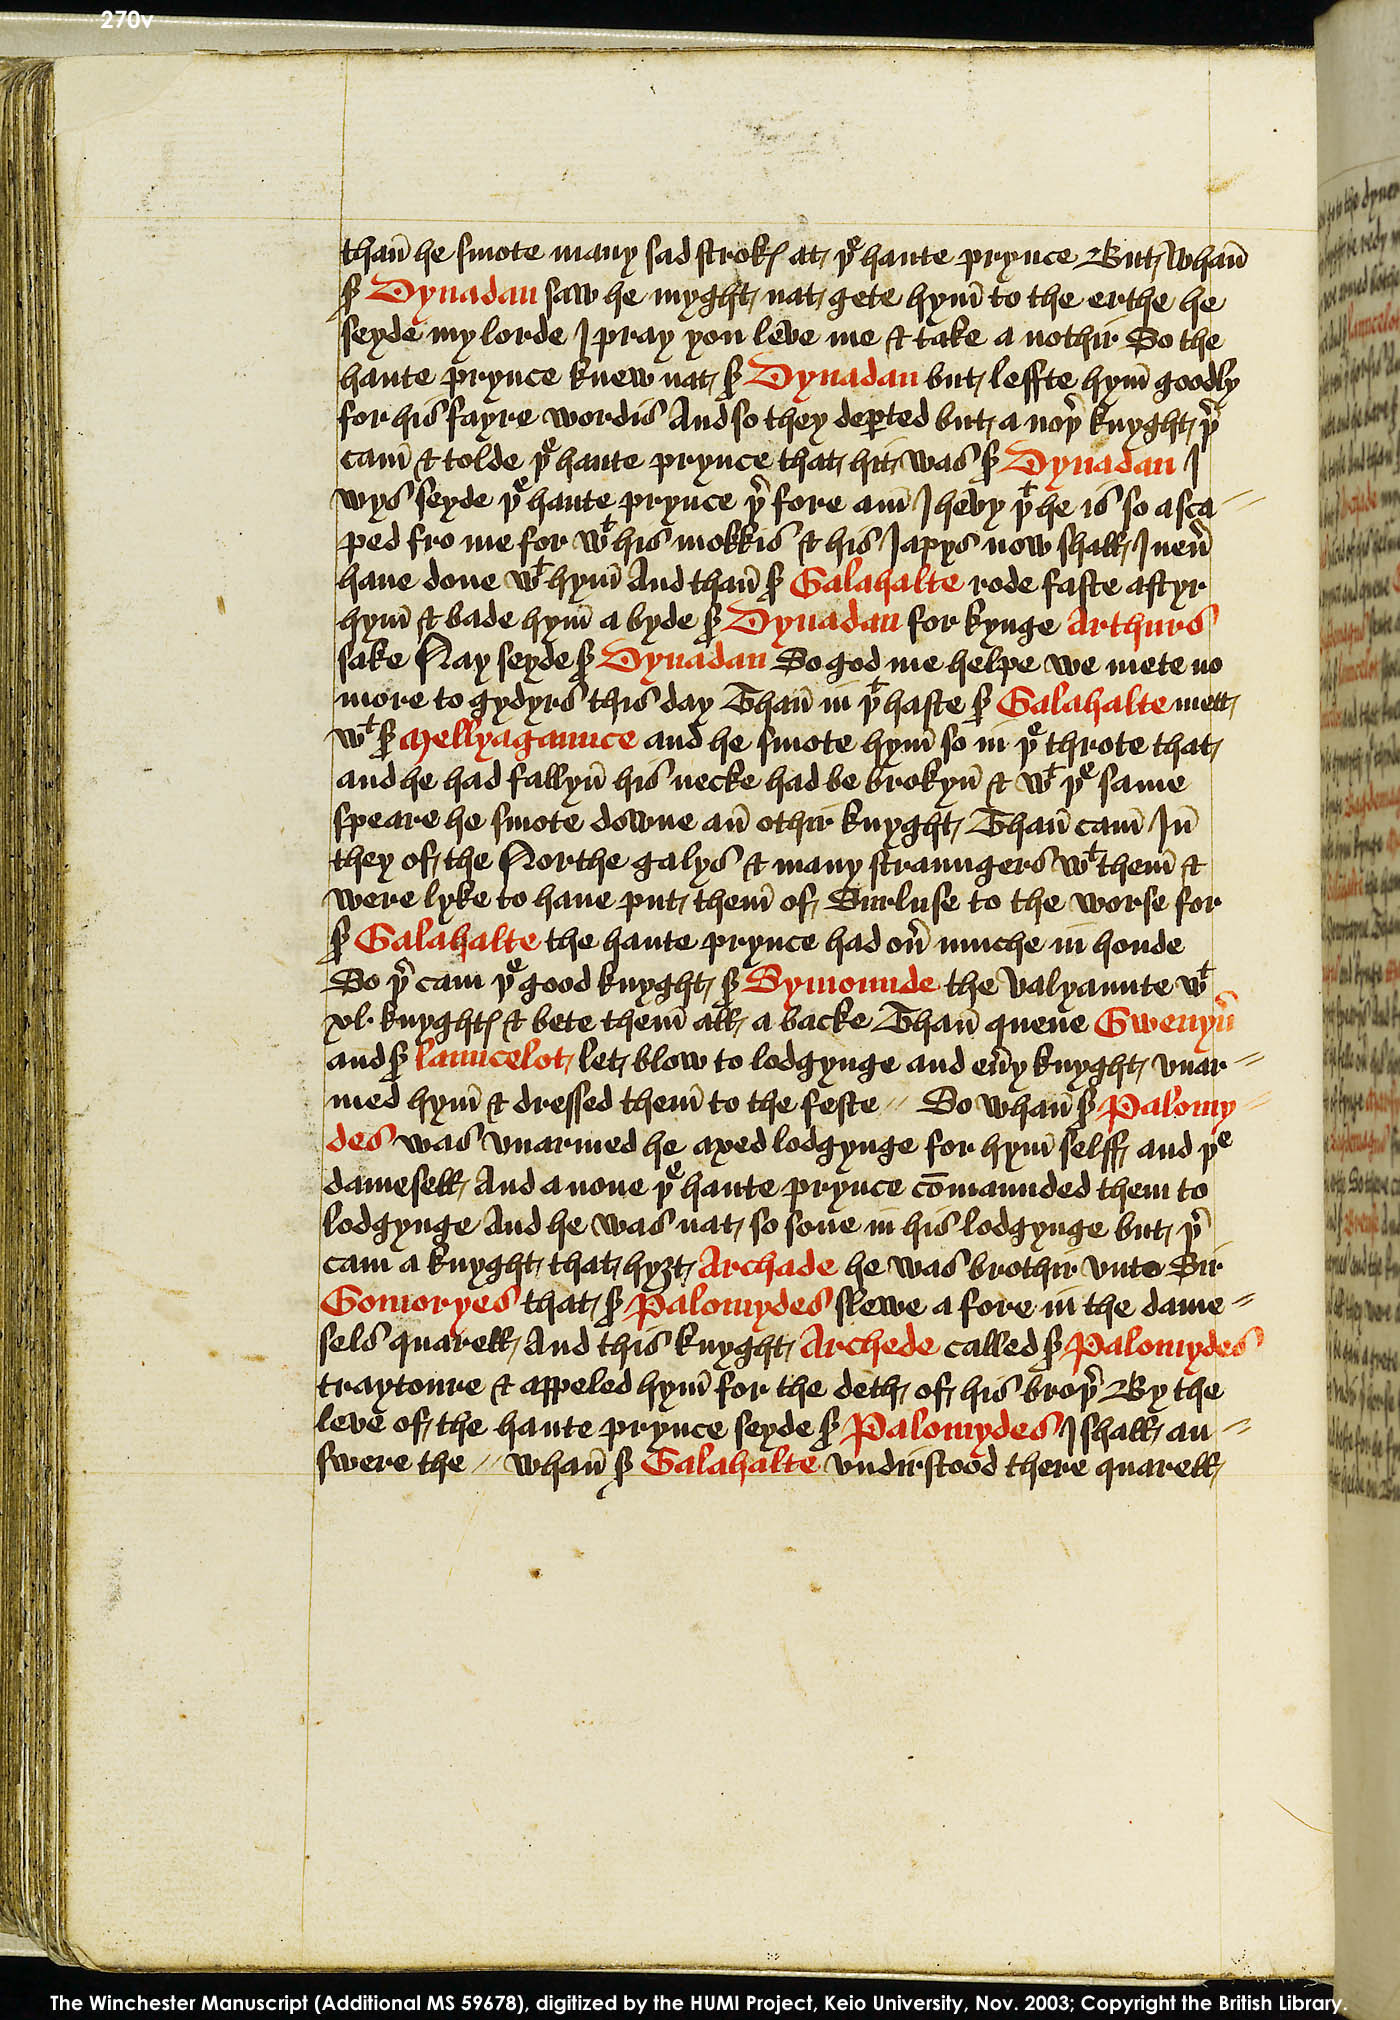 270v
thañ he smote many sad strokꝭ at þᵉ haute prynce But whañ
ẜ Dynadan saw he myght nat gete hym̄ to the erthe he
seyde my lorde I pray you leve me & take a nothir So the
haute prynce knew nat ẜ Dynadan but leffte hym̄ goodly
for his fayre wordis And so they deꝑted but a noþ̄ knyght þ̄
cam̄ & tolde þᵉ haute prynce that hit was ẜ Dynadan I
wys seyde þᵉ haute prynce þ̄ fore am̄ I hevy þᵗ he is so asca
ped fro me for wᵗ his mokkis & his Iapys now shall I neū
haue done wᵗ hym̄ And thañ ẜ Galahalte rode faste aftyr
hym̄ & bade hym̄ a byde ẜ Dynadan for kynge Arthurs
sake Nay seyde ẜ Dynadan So god me helpe we mete no
more to gydyrs this day Thañ in þᵗ haste ẜ Galahalte mett
wᵗ ẜ Mellyagaunce and he smote hym̄ so in þᵉ throte that
and he had fallyñ his necke had be brokyñ & wᵗ þᵉ same
speare he smote downe añ othir knyght Thañ cam̄ Iñ
they of the Northe galys & many straungers wᵗ them̄ &
were lyke to haue put them̄ of Surluse to the worse for
ẜ Galahalte the haute prynce had oū muche in honde
So þ̄ cam þᵉ good knyght ẜ Symounde the Valyaunte wᵗ
xl knyghtꝭ & bete them̄ all a backe Thañ quene Gwenyū
and ẜ launcelot let blow to lodgynge and eūy knyght vnar
med hym̄ & dressed them̄ to the feste So whañ ẜ Palomy
des was vnarmed he axed lodgynge for hym̄ selff and þᵉ
damesell And a none þᵉ haute prynce cōmaunded them to
lodgynge And he was nat so sone in his lodgynge but þ̄
cam a knyght that hyȝt Archade he was brothir vnto Sir
Gomoryes that ẜ Palomydes slewe a fore in the dame
sels quarell And this knyght Archede called ẜ Palomydes
traytoure & appeled hym̄ for the deth of his broþ̄ By the
leve of the haute prynce seyde ẜ Palomydes I shall an
swere the whañ ẜ Galahalte vndirstood there quarell
The Winchester Manuscript (Additional MS 59678), digitized by the HUMI Project, Keio University, Nov. 2003; Copyright the British Library.